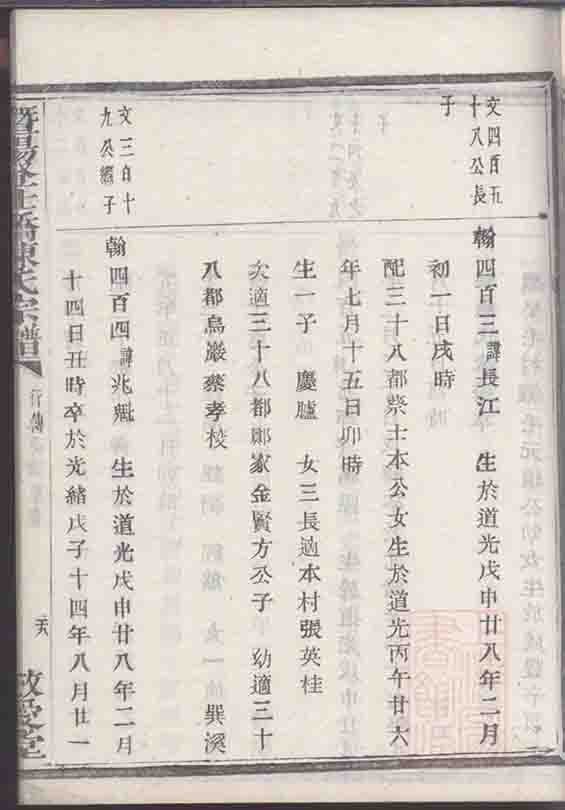 文四百五
十八公長
子
翰四百三諱長江　生於道光戊申廿八年二月
初一日戌時
配三十八都紫士本公女生於道光丙午廿六
年七月十五日卯時
生一子　慶臚　女三長適本村張英桂
次適三十八都鄭家金賢方公子　幼適三十
八都烏巖蔡孝校　巽溪
文三百十
九公繼子
翰四百四諱兆魁　生於道光戊申廿八年二月
十四日丑時卒於光緒戊子十四年八月廿一
陳氏宗譜
行傳
敬愛堂